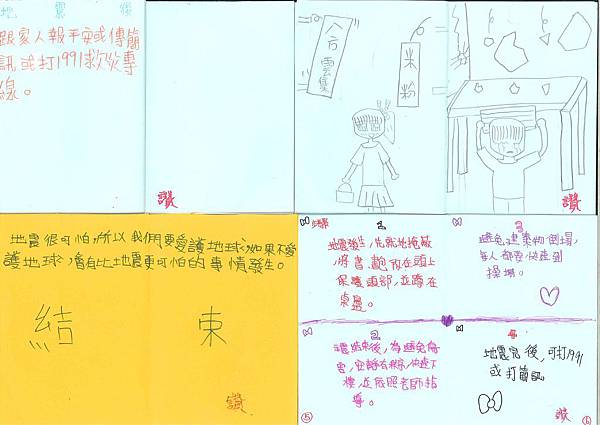 地震後
跟家人報平安或傳簡
訊或打1991救災專
線。
讚
合雲集
米粉
讚
地震很可怕,所以我們要愛護地球,如果不愛
護地球,會有比地震更可怕的事情發生。
結 束
讚
1
地震發生,先就地掩蔽
將書包放在頭上
保護頭部,並蹲在
桌邊。
2
震結束後,為避免傷
害,安靜有秩序,快速下
樓,並依照老師指
導。
⑤
3
避免建築物倒塌,
每人都要快速到
操場。
4
地震完後,可打1991
或打簡訊
讚
⑥